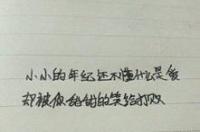 小小的年纪还不懂什么是爱
却被你甜甜的笑给打败